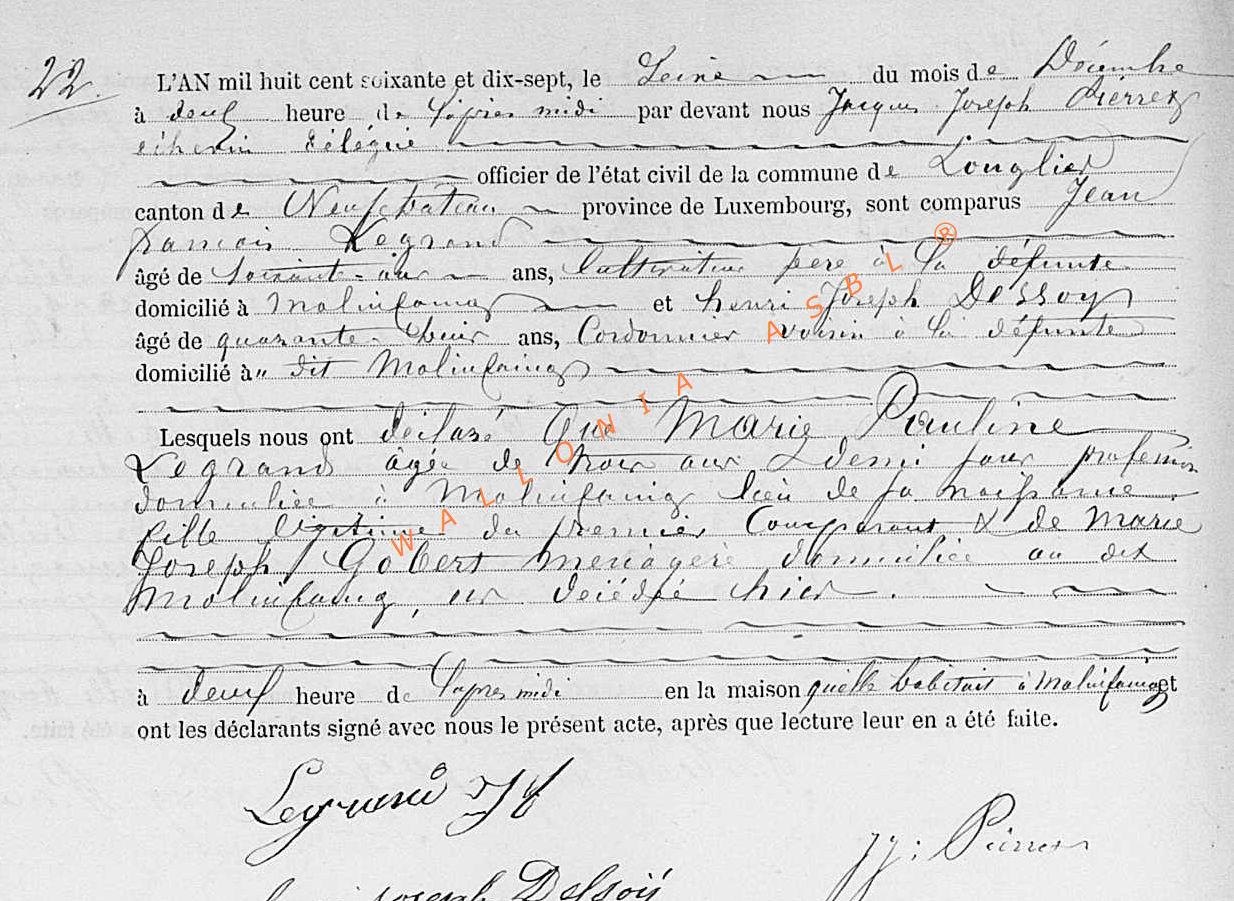 22.
L'AN mil huit cent soixante et dix-sept, le Seize du mois de Décembre
à deux heure de l'après midi par devant nous Jacques Joseph Pierret
échevin délégué
officier de l'état civil de la commune de Longlier
canton de Neufchâteau province de Luxembourg, sont comparus Jean
françois Legrand
âgé de soixante-dix ans, Cultivateur père à la défunte
domicilié à Molinfaing et henri Joseph Dessoy
âgé de quarante-huit ans, Cordonnier voisin à la défunte
domicilié à dit Molinfaing
Lesquels nous ont déclaré Que Marie Pauline
Legrand âgée de trois ans & demi sans profession
domiciliée à Molinfaing lieu de sa naissance
fille légitime du premier Comparant & de Marie
Joseph Gobert ménagère domiciliée au dit
Molinfaing, est décédée hier.
à deux heure de l'après midi en la maison quelle habitait à Molinfaing et
ont les déclarants signé avec nous le présent acte, après que lecture leur en a été faite.
Legrand
JJ: Pierret
joseph Delsoÿ
WALLONIA ASBL ®